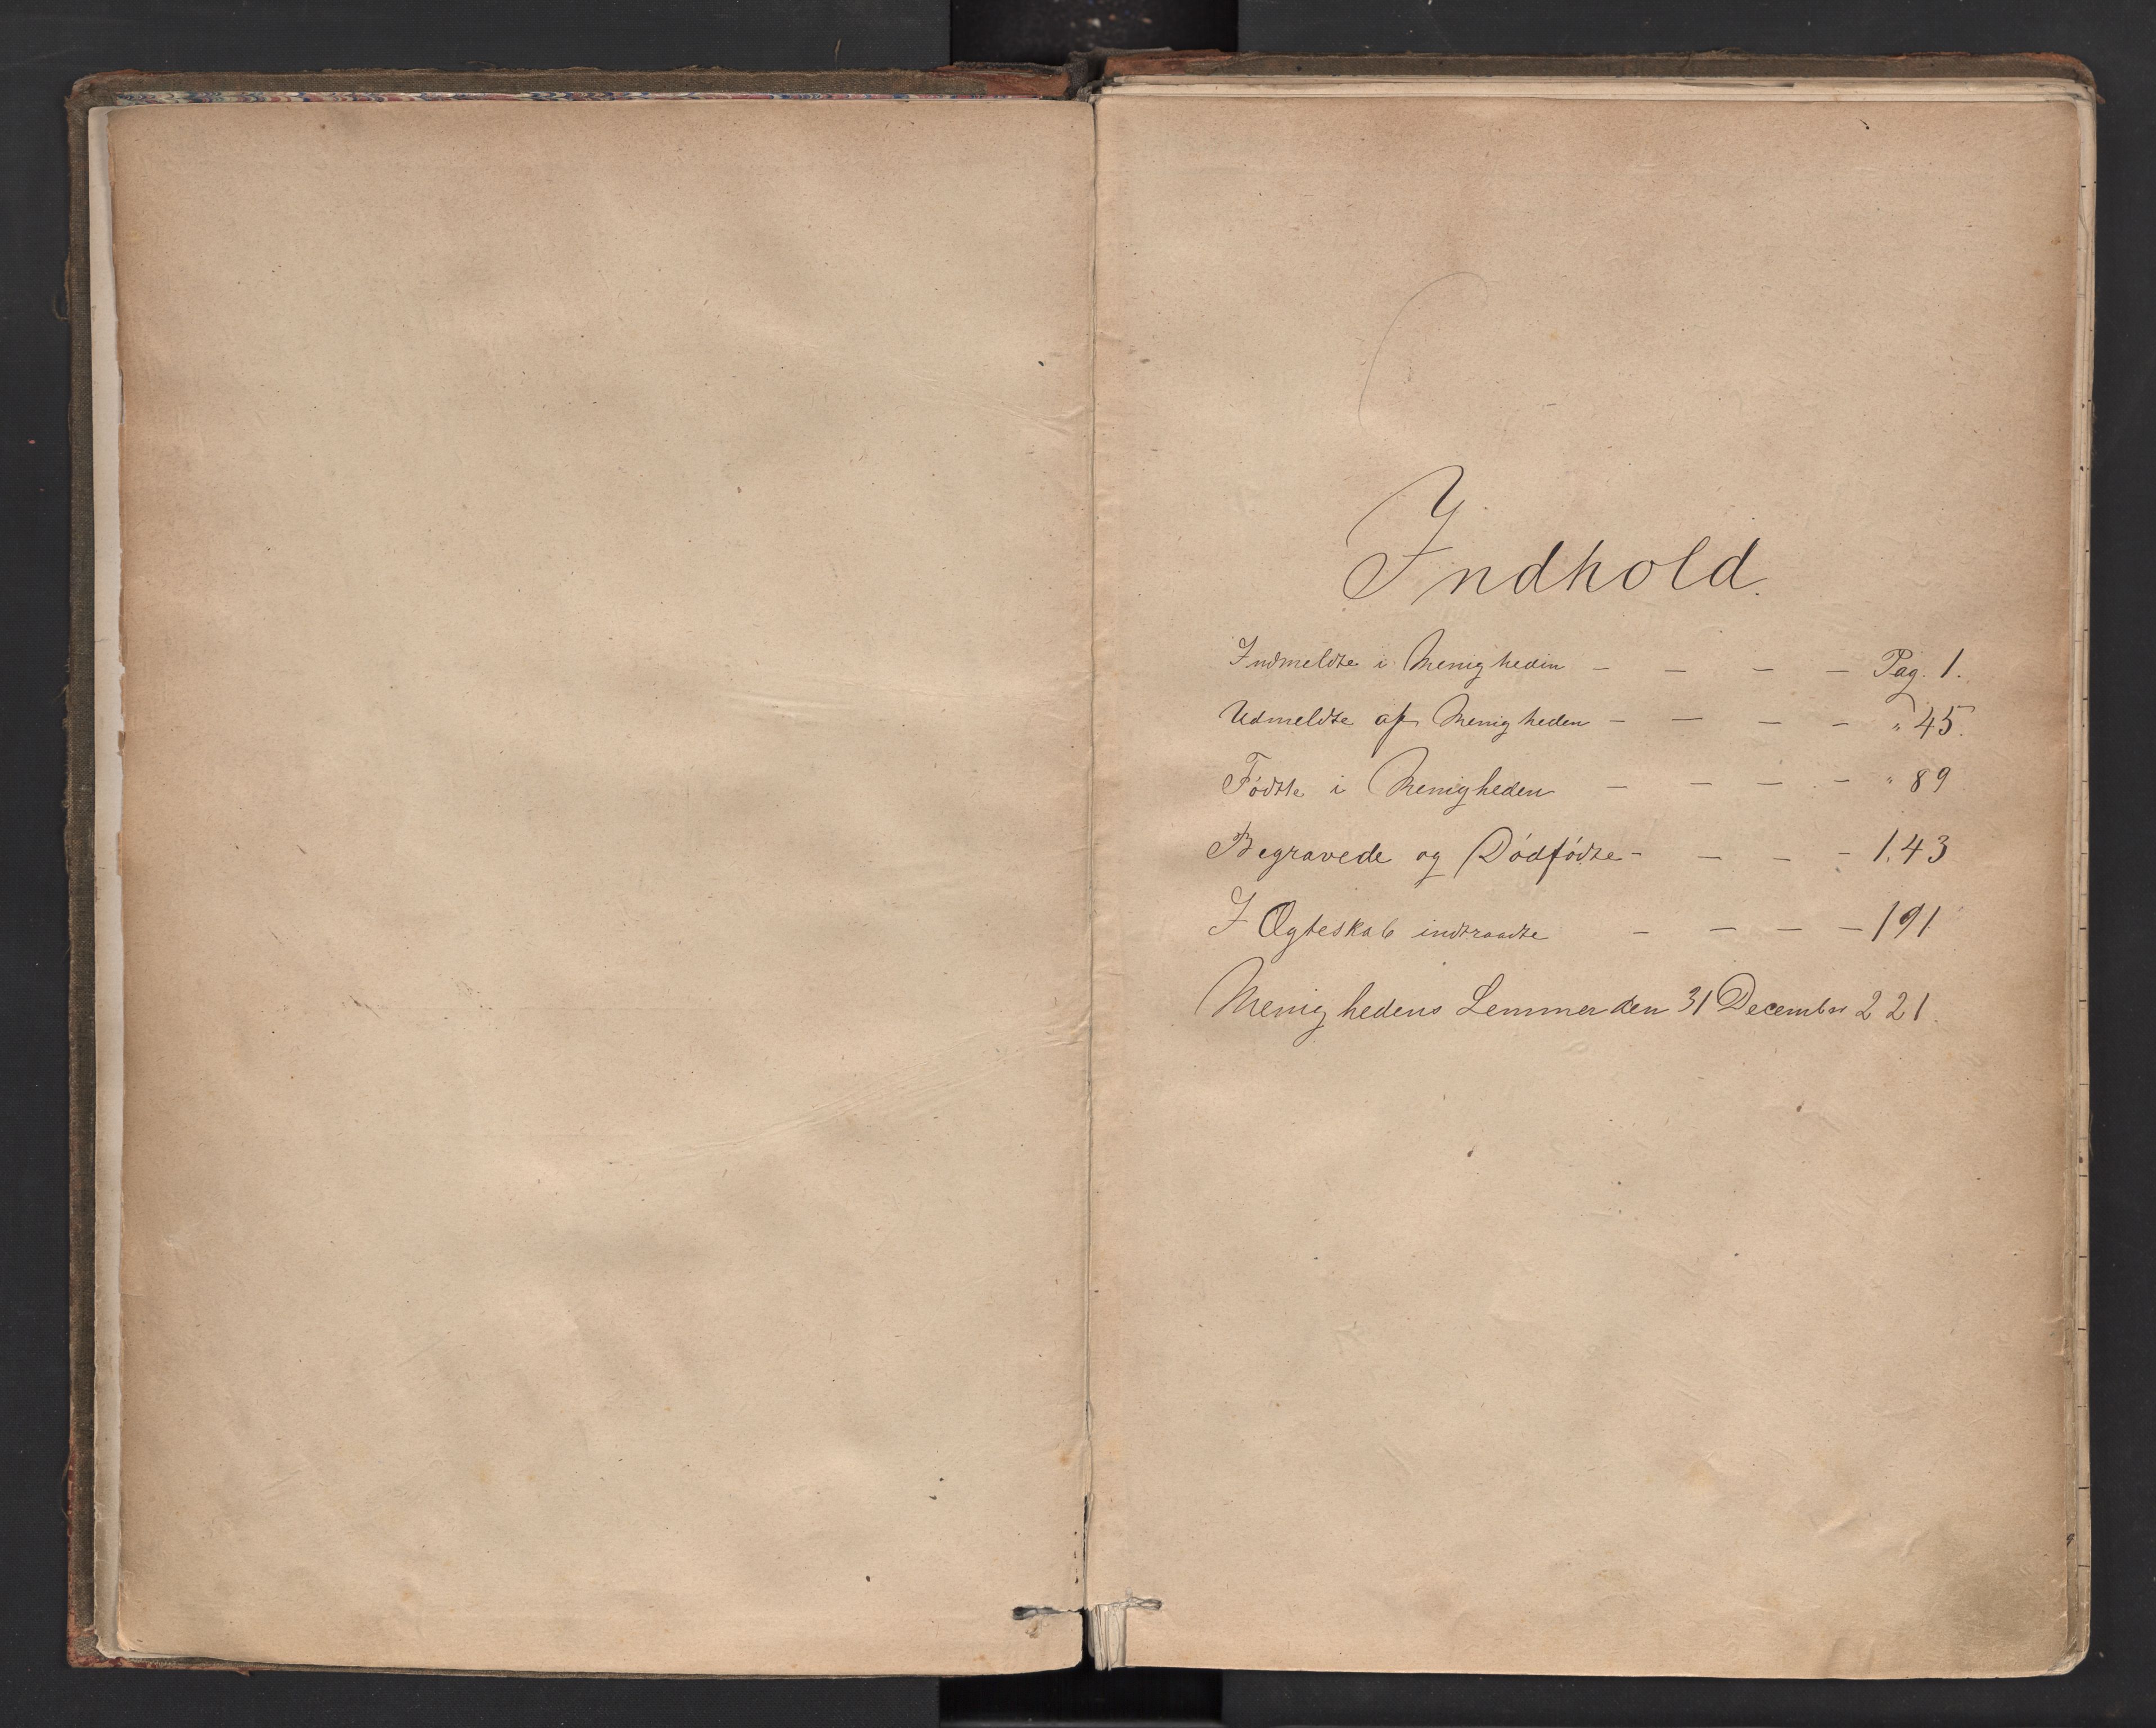 Indhold.
Indmeldte i Menigheden — — — — Pag. 1.
Udmeldte af Menigheden — — — — " 45.
Fødte i Menigheden — — — — " 89
Begravede og Dødfødte — — — — 143
I Ægteskab indtraadte — — — — 191
Menighedens Lemmer den 31 December 221.